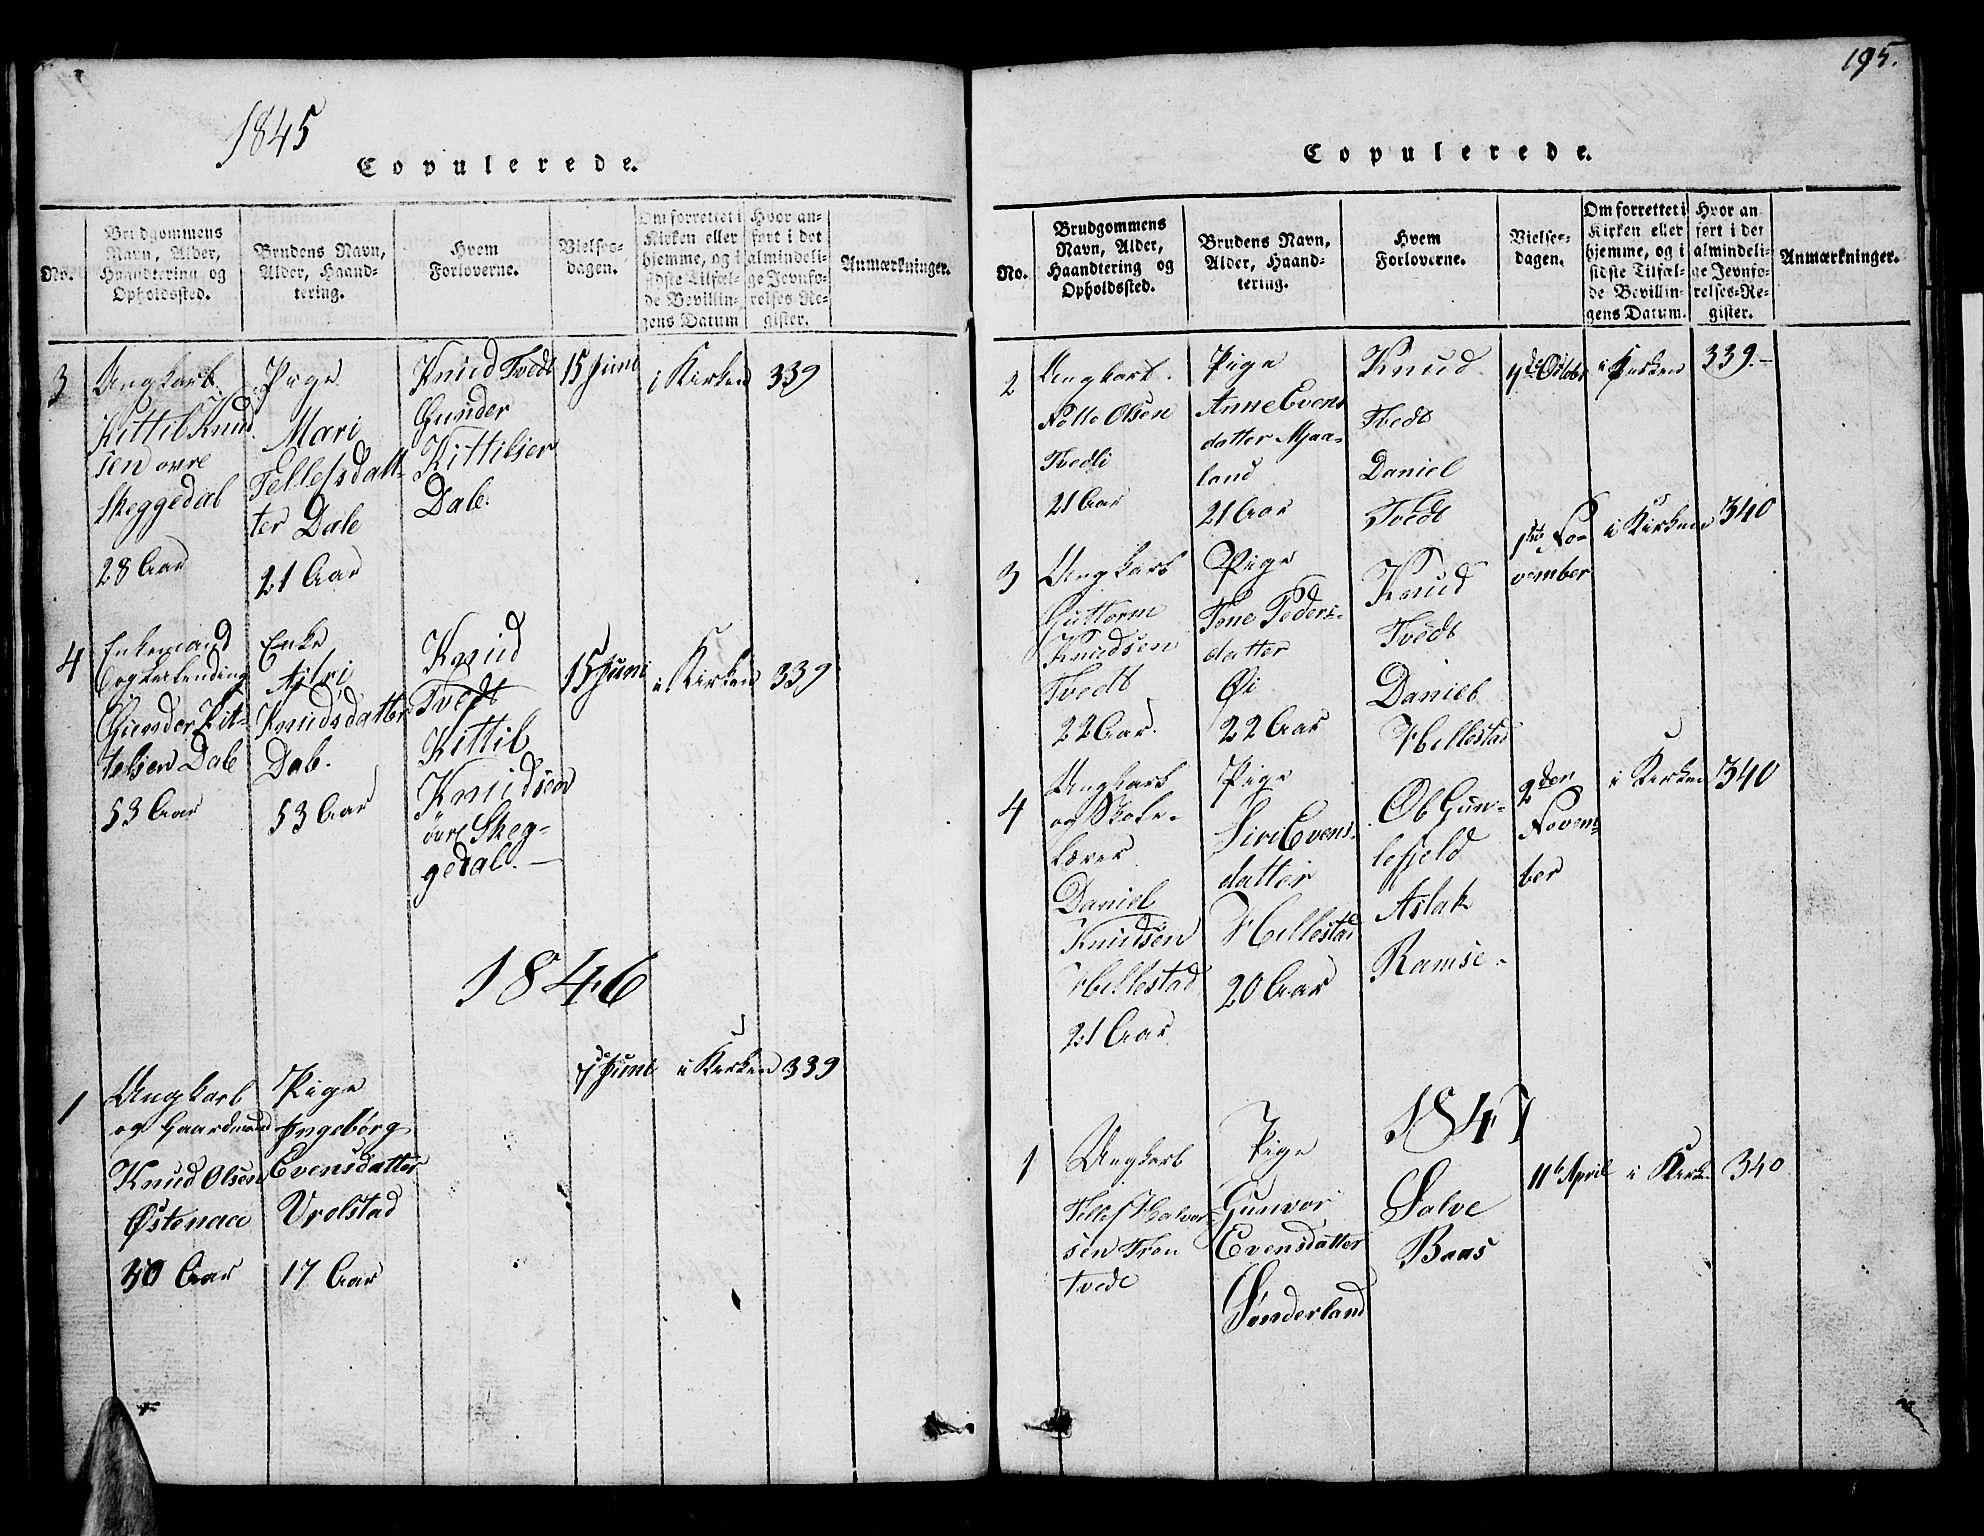 1845
Copulerede.
No.
Brudgommens
Navn, Alder,
Haandtering og
Opholdssted.
Brudens Navn,
Alder, Haand-
tering.
Hvem
Forloverne.
Vielses-
dagen.
Om forrettet i
Kirken eller
hjemme, og i
sidste Tilfæl-
de Bevillin-
gens Datum
Hvor an-
ført i det
almindeli-
ge Jevnfø-
relses-Re-
gister.
Anmærkninger.
3
Ungkarl
Kittil Knud
sen øvre
Skeggedal
28 Aar
Pige
Mari
Tellefsdatt-
ter Dale
21 Aar
Knud Tvedt
Gunder
Kittilsen
Dale.
15 Juni
i Kirken
339
4
Enkemand
Gunder Kit-
telsen Dale
53 Aar
Enke
Aslri
Knudsdatter
Dale.
53 Aar
Knud
Tvedt
Kittil
Knudsen
övre Skeg-
gedal. —
15 Juni
i Kirken
339
1846
1
Ungkarl
og Gaardmand
Knud Olsen
Østenaae
30 Aar
Pige
Ingebørg
Evensdatter
Vrolstad
17 Aar
7de Juni
i Kirken
339
195.
Copulerede.
No.
Brudgommens
Navn, Alder,
Haandtering og
Opholdssted.
Brudens Navn,
Alder, Haand-
tering.
Hvem
Forloverne.
Vielses-
dagen.
Om forrettet i
Kirken eller
hjemme, og i
sidste Tilfæl-
de Bevillin-
gens Datum.
Hvor an
ført i det
almindeli-
ge Jevnfø-
relses-Re-
gister.
Anmærkninger.
2
Ungkarl.
Olsen
Tvedti
21 Aar
Pige
Anne Evens
datter Mjaa-
land
21 Aar
Knud
Tvedt
Daniel
Tvedt
4de October
i Kirken
339.—
3
Ungkarl
Guttorm
Knudsen
Tvedt
22 Aar.
Pige
Tone Peders-
datter
Øi
22 Aar
Knud
Tvedt
Daniel
Hellestad
1ste No-
vember
i Kirken
340
4
Ungkarl
og Skole-
lærer
Daniel
Knudsen
Hellestad
21 Aar
Pige
Siri Evens-
datter
Hellestad
20 Aar
Ol Gun-
lefjeld
Aslak
Ramse.
2den
Novem-
ber
i Kirken
340
1847
1
Ungkarl
Tellef Halvor-
sen Tron
tvede
Pige
Gunvor
Evensdatter
Sønderland
Salve
Baas
11te April
i Kirken
340